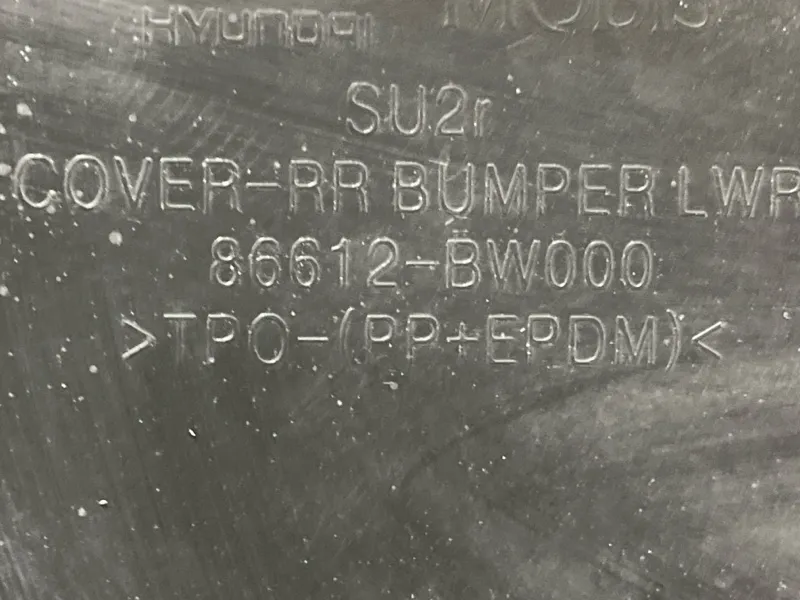 HYUNDAI MOBIS
SU2r
COVER-RR BUMPER LWR
86612-BW000
>TPO-(PP+EPDM)<